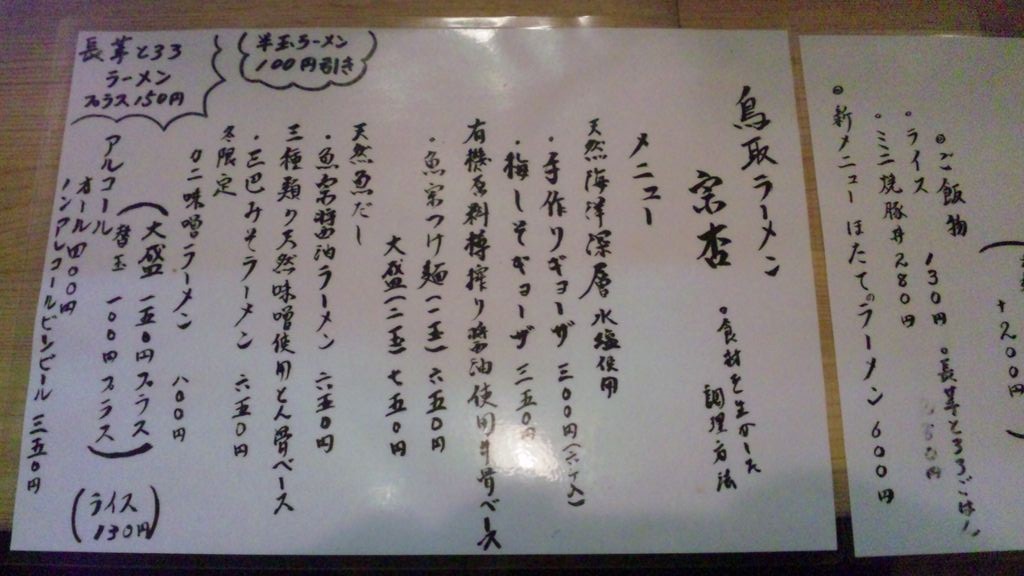 鳥取ラーメン
宗杏
。食材を生かした
調理方法
メニュー
天然海洋深層水塩使用
・手作りギョーザ 三〇〇円(六ケ入)
・梅しそギョーザ 三五〇円
有機原料樽搾り醤油使用牛骨ベース
・魚宗つけ麺(一玉)六五〇円
大盛(二玉)七五〇円
天然魚だし
・魚宗醤油ラーメン 六五〇円
三種類り天然味噌使用とん骨ベース
・三巴みそラーメン 六五〇円
冬限定
カニ味噌ラーメン 八〇〇円
(大盛 一五〇円プラス
替玉 一〇〇円プラス)
アルコール
オール四〇〇円
ノンアルコールビンビール 三五〇円
(ライス
130円)
半玉ラーメン
100円引き
長芋とろろ
ラーメン
プラス150円
+200円)
。ご飯物
・ライス 130円 。長芋とろろごはん
・ミニ焼豚丼280円
。新メニュー ほたてのラーメン 600円